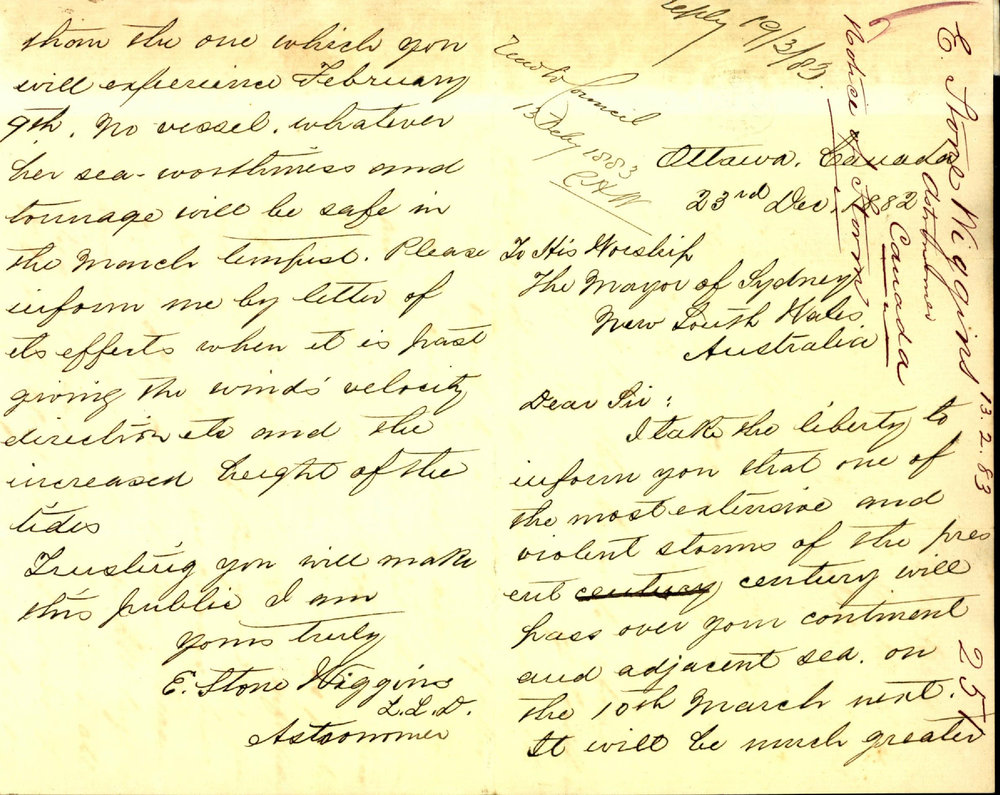 Reply 19/3/83.
Council
13 Feby 1883
E. Stone Wiggins 13.2.83
Astronomer
Canada
Notice of Storm
251
Ottawa. Canada
23rd Dec. 1882
To His Worship
The Mayor of Sydney
New South Wales
Australia
Dear Sir:
I take the liberty to
inform you that one of
the most extensive and
violent storms of the pres
ent century century will
pass over your continent
and adjacent sea. on
the 10th March next.
It will be much greater
than the one which you
will experience February
9th. No vessel. whatever
her sea-worthiness and
tonnage will be safe in
the March tempest. Please
inform me by letter of
its effects when it is past
giving the winds' velocity
direction etc and the
increased height of the
tides
Trusting you will make
this public I am
yours truly
E. Stone Wiggins
L.L.D.
Astronomer